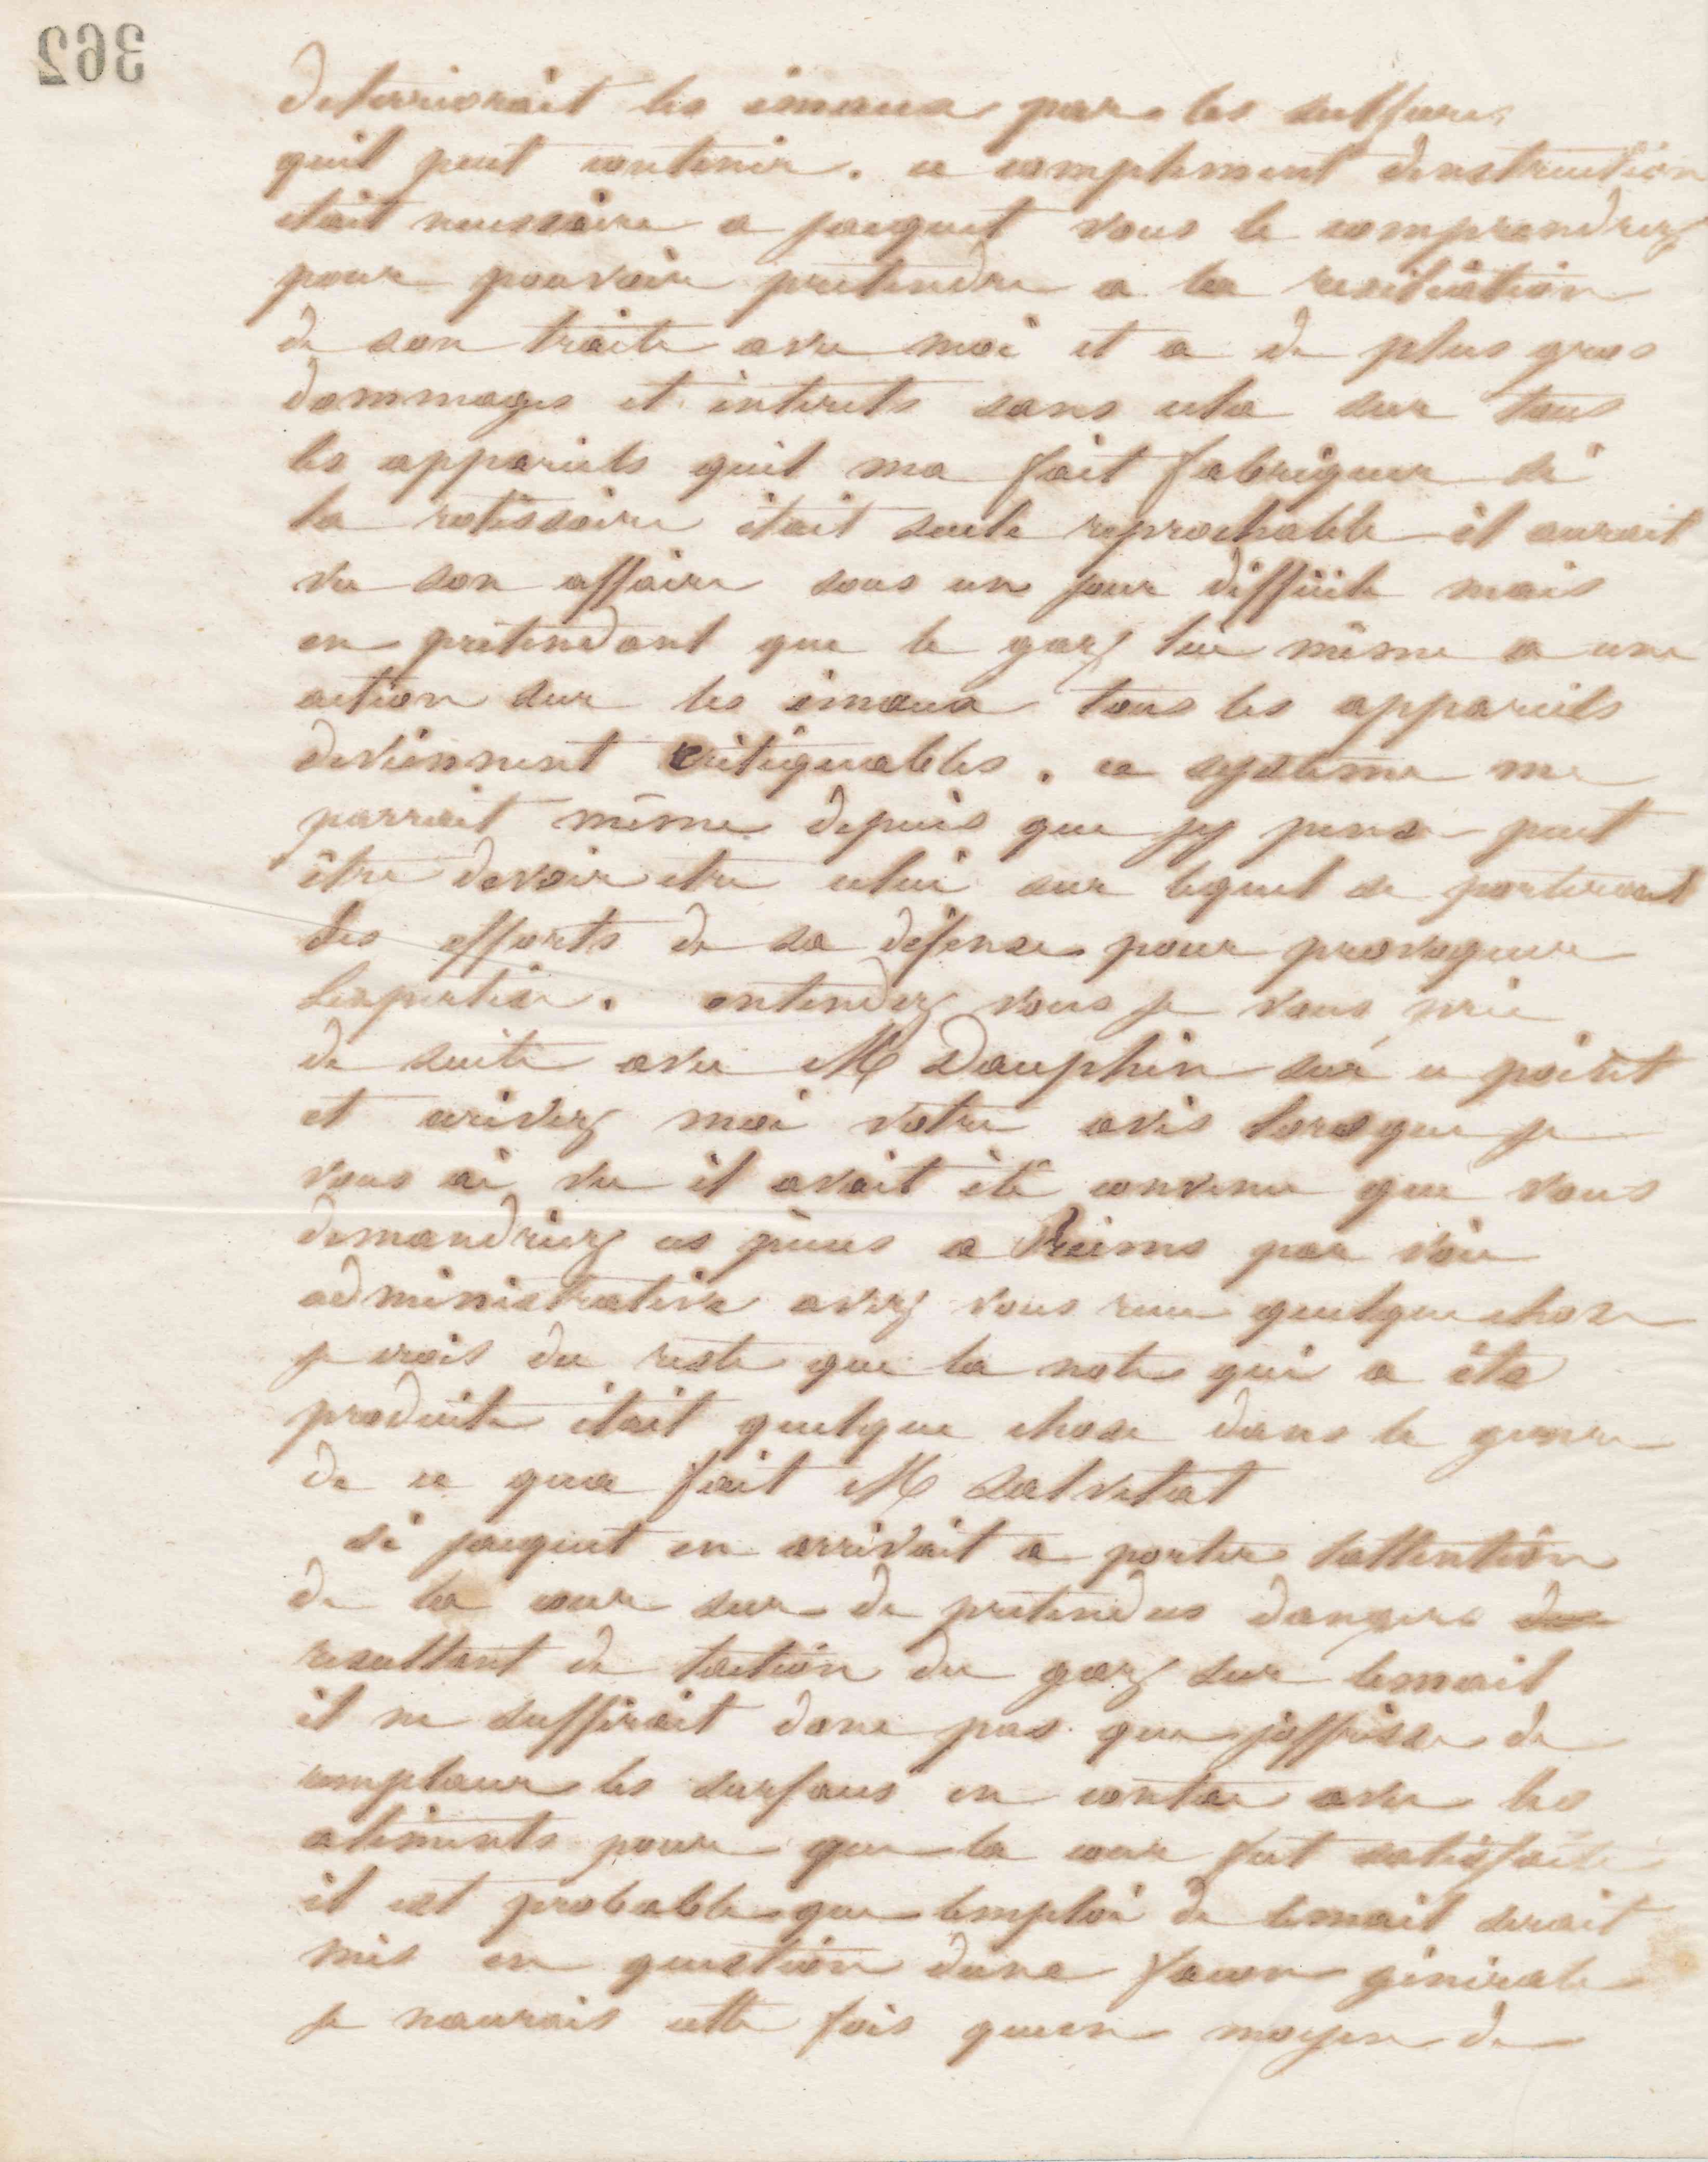 362
deteriorait les émaux par les sulfures
quil peut contenir. ce complement dinstruction
était necessaire a jacquet vous le comprendrez
pour pouvoir pretendre a la resiliation
de son traite avec moi et a de plus gros
dommages et intérets sans cela sur tous
les appareils quil ma fait fabriquer si
la rotissoire était seule reprochable il aurait
vu son affaire sous un jour difficile mais
en prétendant que le gaz lui même a une
action sur les émaux tous les appareils
deviennent critiquables. ce systeme me
parrait même depuis que jy pense peut
être devoir etre celui sur lequel se porteront
les efforts de sa défense pour provoquer
lexpertise. entendez vous je vous prie
de suite avec M Dauphin sur ce point
et ecrivez moi votre avis lorsque je
vous ai vu il avait été convenu que vous
demandriez ces pièces a Reims par voie
administrative avez vous recu quelque chose
je crois du reste que la note qui a été
produite était quelque chose dans le genre
de ce qua fait M Salvetat
si jacquet en arrivait a porter lattention
de la cour sur de pretendus dangers
resultant de laction du gaz sur lemail
il ne suffirait donc pas que joffrisse de
remplacer les surfaces en contac avec les
aliments pour que la cour fut satisfaite
il est probable que lemploi de lemail serait
mis en question dune facon générale
je naurais cette fois quun moyen de